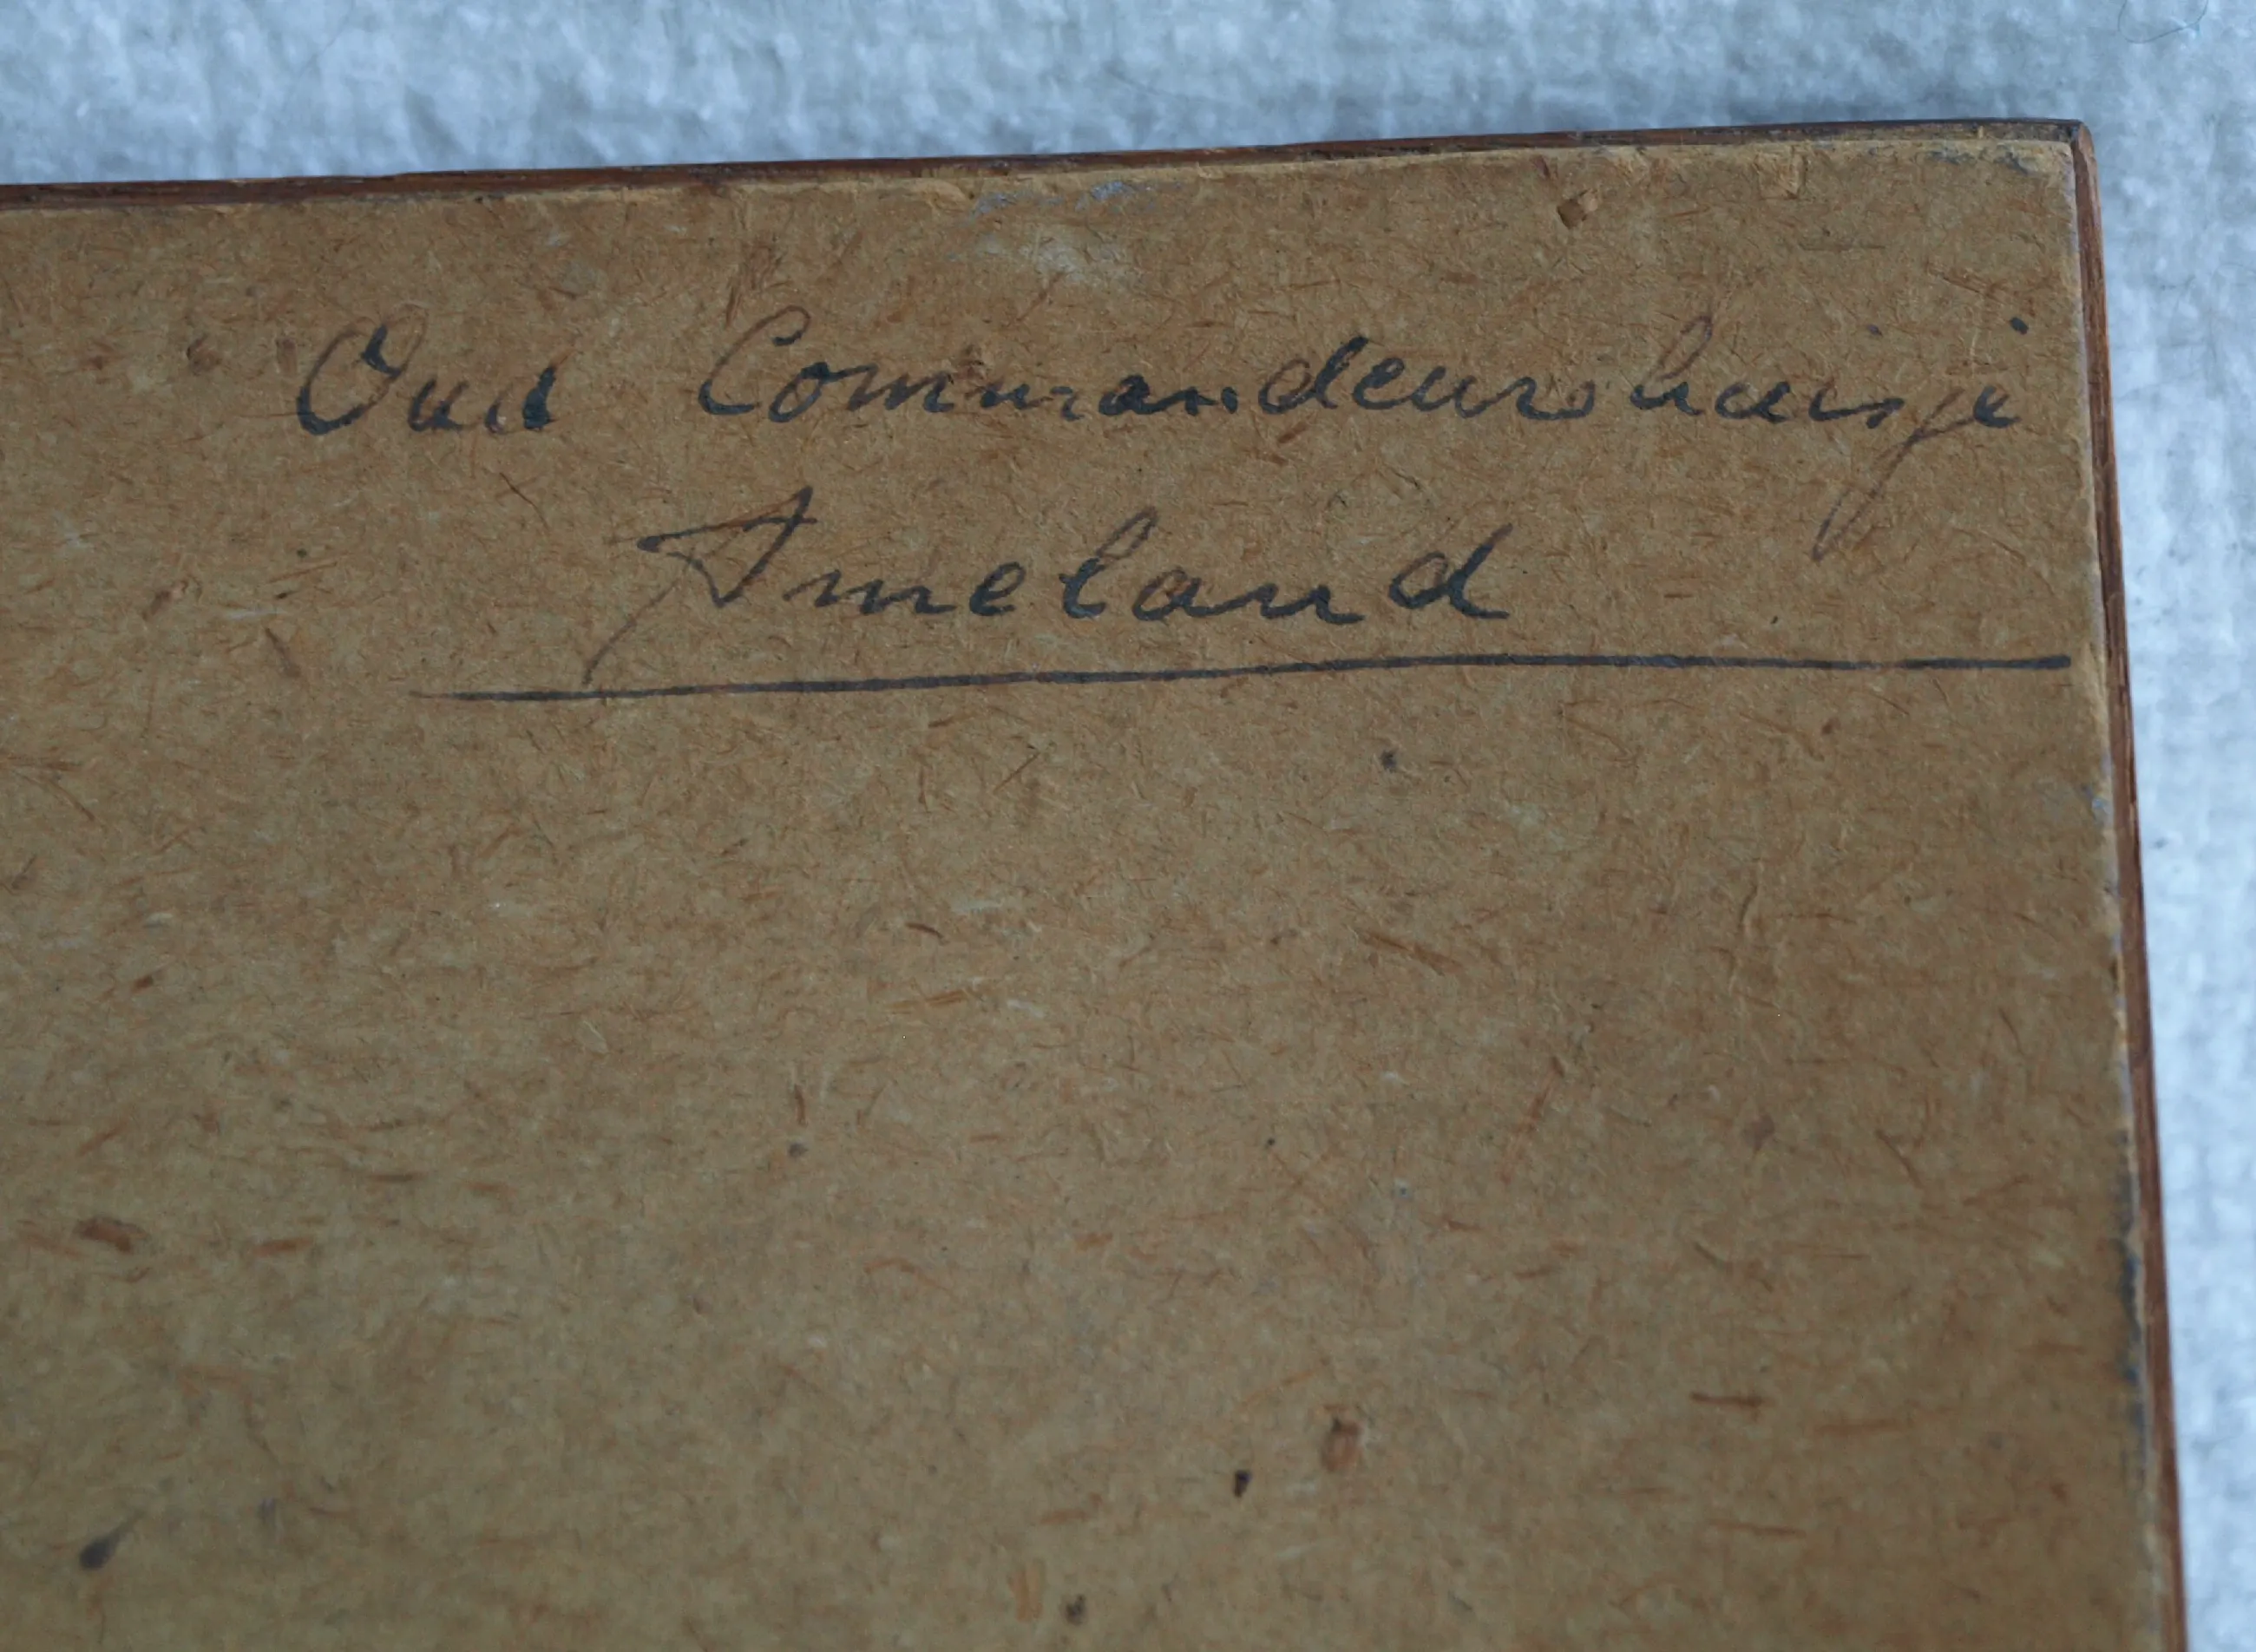 Oud Commandeurshuisje
Ameland